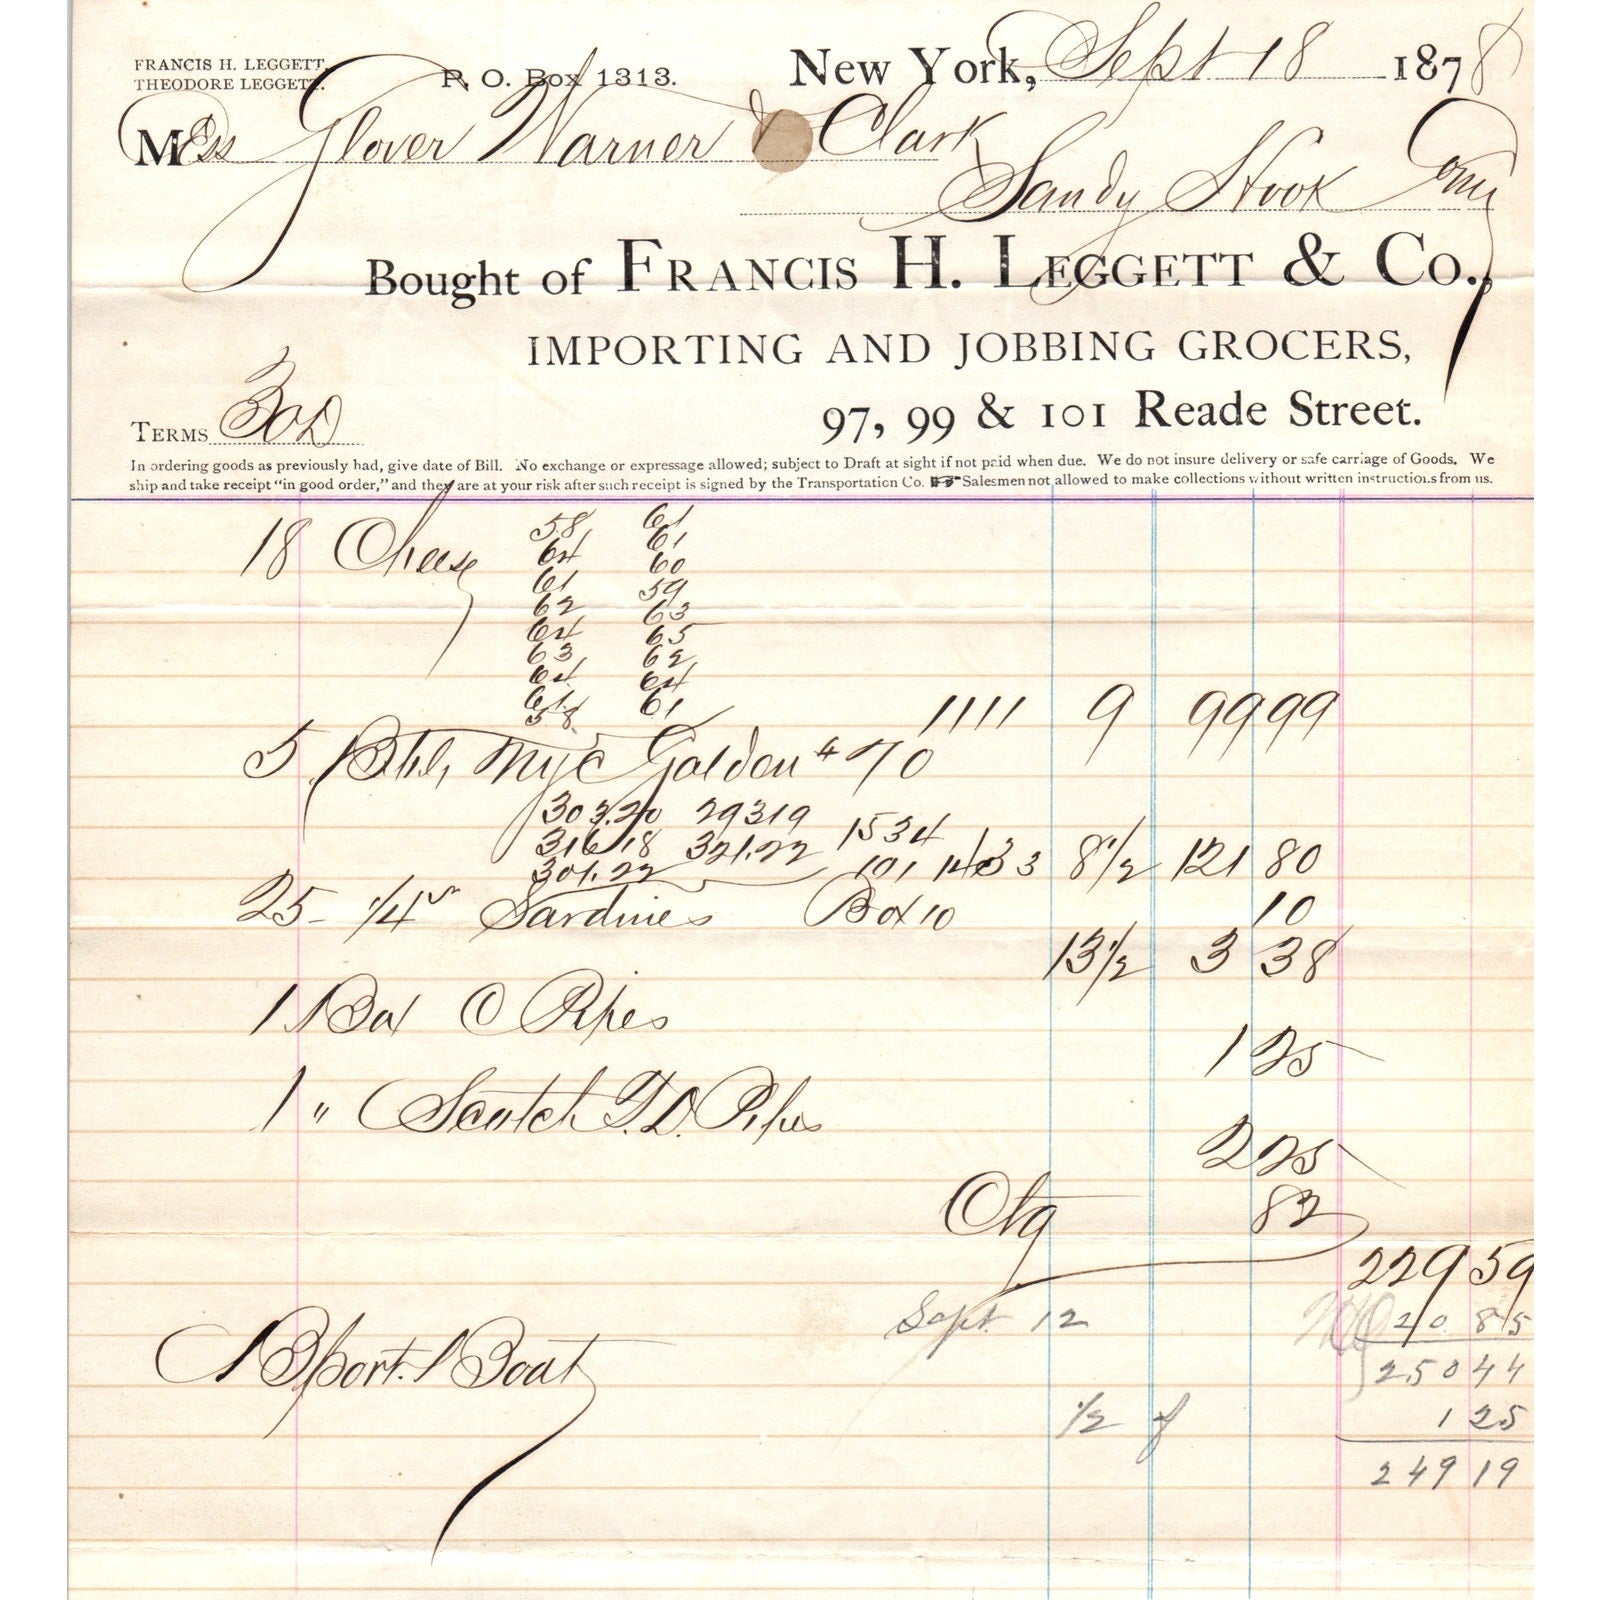 FRANCIS H. LEGGETT,
THEODORE LEGGETT.
P. O. Box 1313.
New York, Sept 18 1878
Mess Glover Warner & Clark
Sandy Hook Conn
Bought of FRANCIS H. LEGGETT & CO.,
IMPORTING AND JOBBING GROCERS,
97, 99 & 101 Reade Street.
TERMS 30D
In ordering goods as previously had, give date of Bill. No exchange or expressage allowed; subject to Draft at sight if not paid when due. We do not insure delivery or safe carriage of Goods. We
ship and take receipt "in good order," and they are at your risk after such receipt is signed by the Transportation Co. ☞ Salesmen not allowed to make collections without written instructions from us.
18 Cheese 58 61
64 61
61 60
62 59
64 63
63 65
64 62
61 64
58 61 1111 9 99 99
5 Bbls, NYC Golden 70
303.20 29319
316 18 321.22 1534
301.22 101 1433 8 1/2 121 80
25 1/4s Sardines Box 10 10
13 1/2 3 38
1 Box C Pipes
1 25
1 " Scotch T.D. Pipes
2 25
Ctg 82
229 59
Sept. 12 20 85
250 44
Bport. Boat
1/2 1 25
249 19